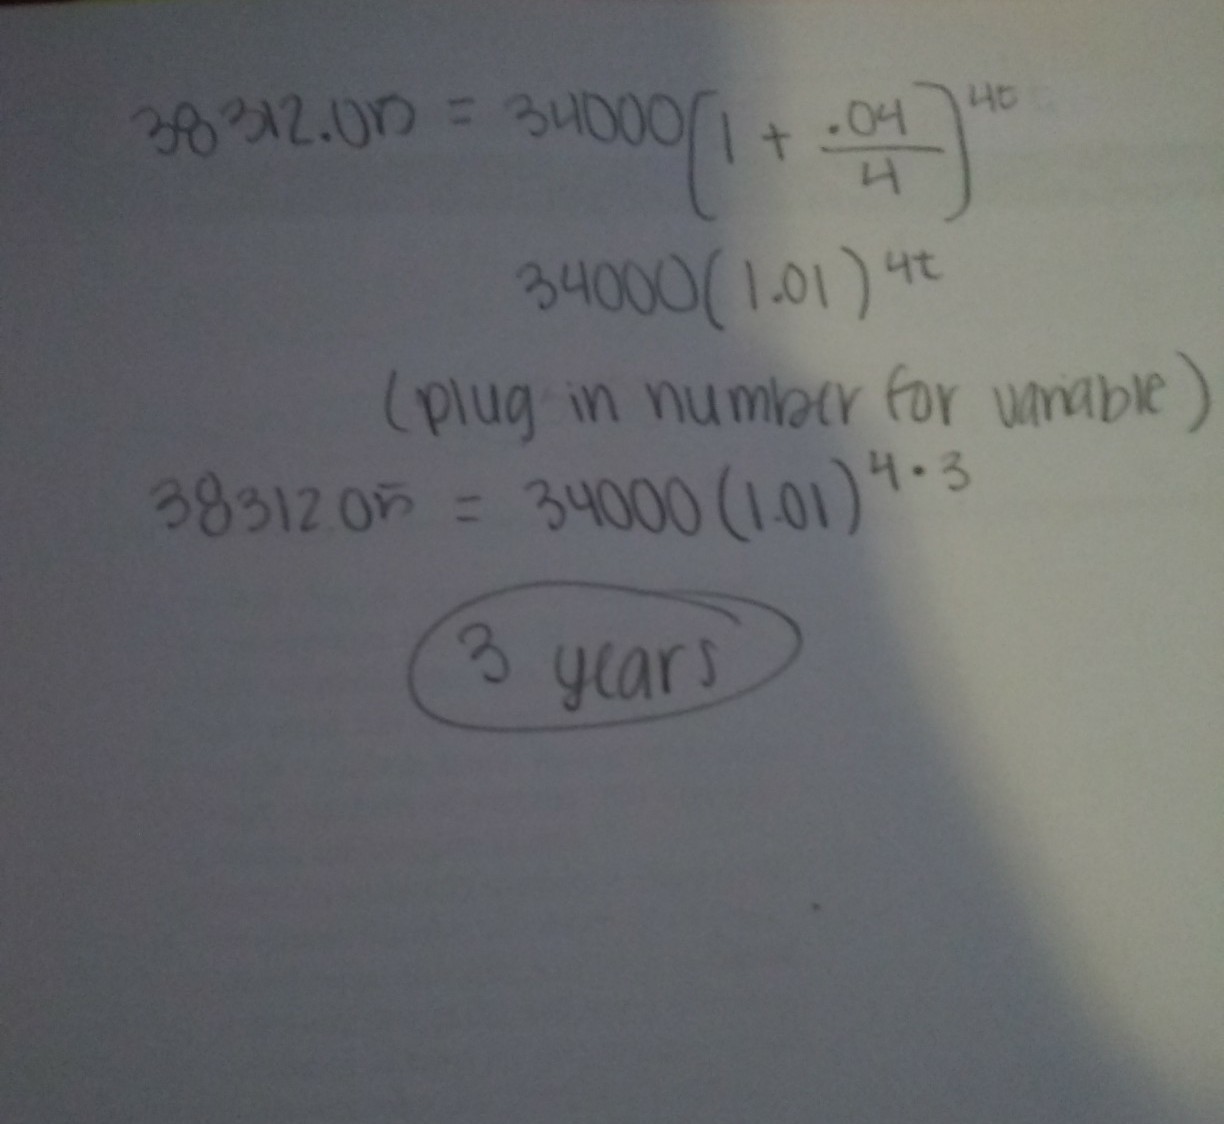 38312.05 = 34000[1 + .04/4]^4t
34000(1.01)^4t
(plug in number for variable)
38312.05 = 34000(1.01)^4·3
3 years